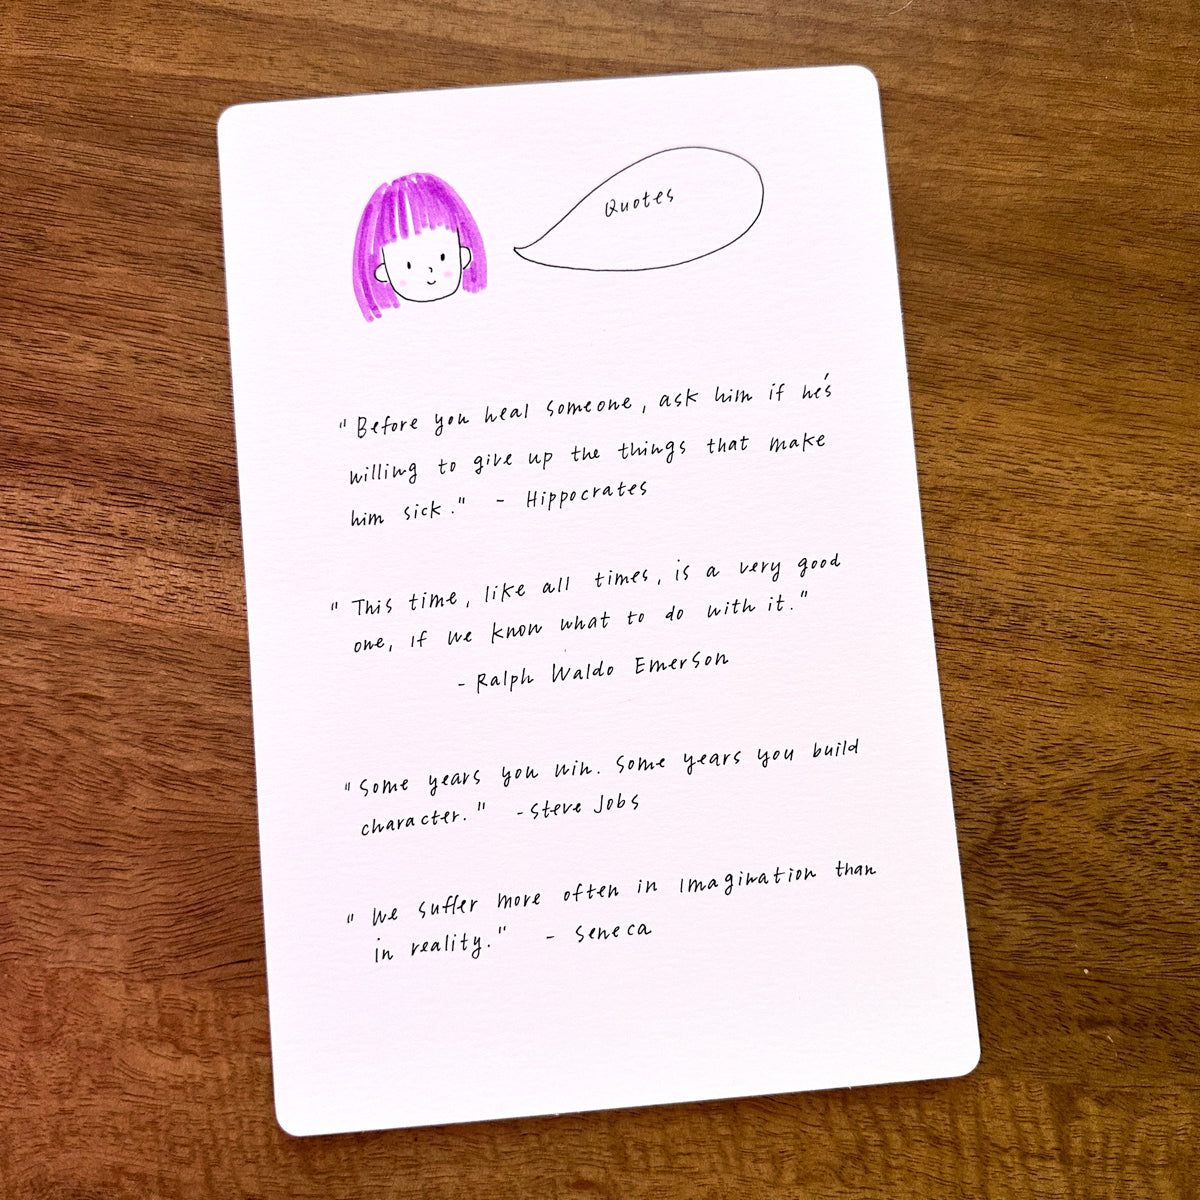 Quotes
"Before you heal someone, ask him if he's
willing to give up the things that make
him sick." - Hippocrates
"This time, like all times, is a very good
one, if we know what to do with it."
- Ralph Waldo Emerson
"Some years you win. Some years you build
character." - Steve Jobs
"We suffer more often in imagination than
in reality." - Seneca